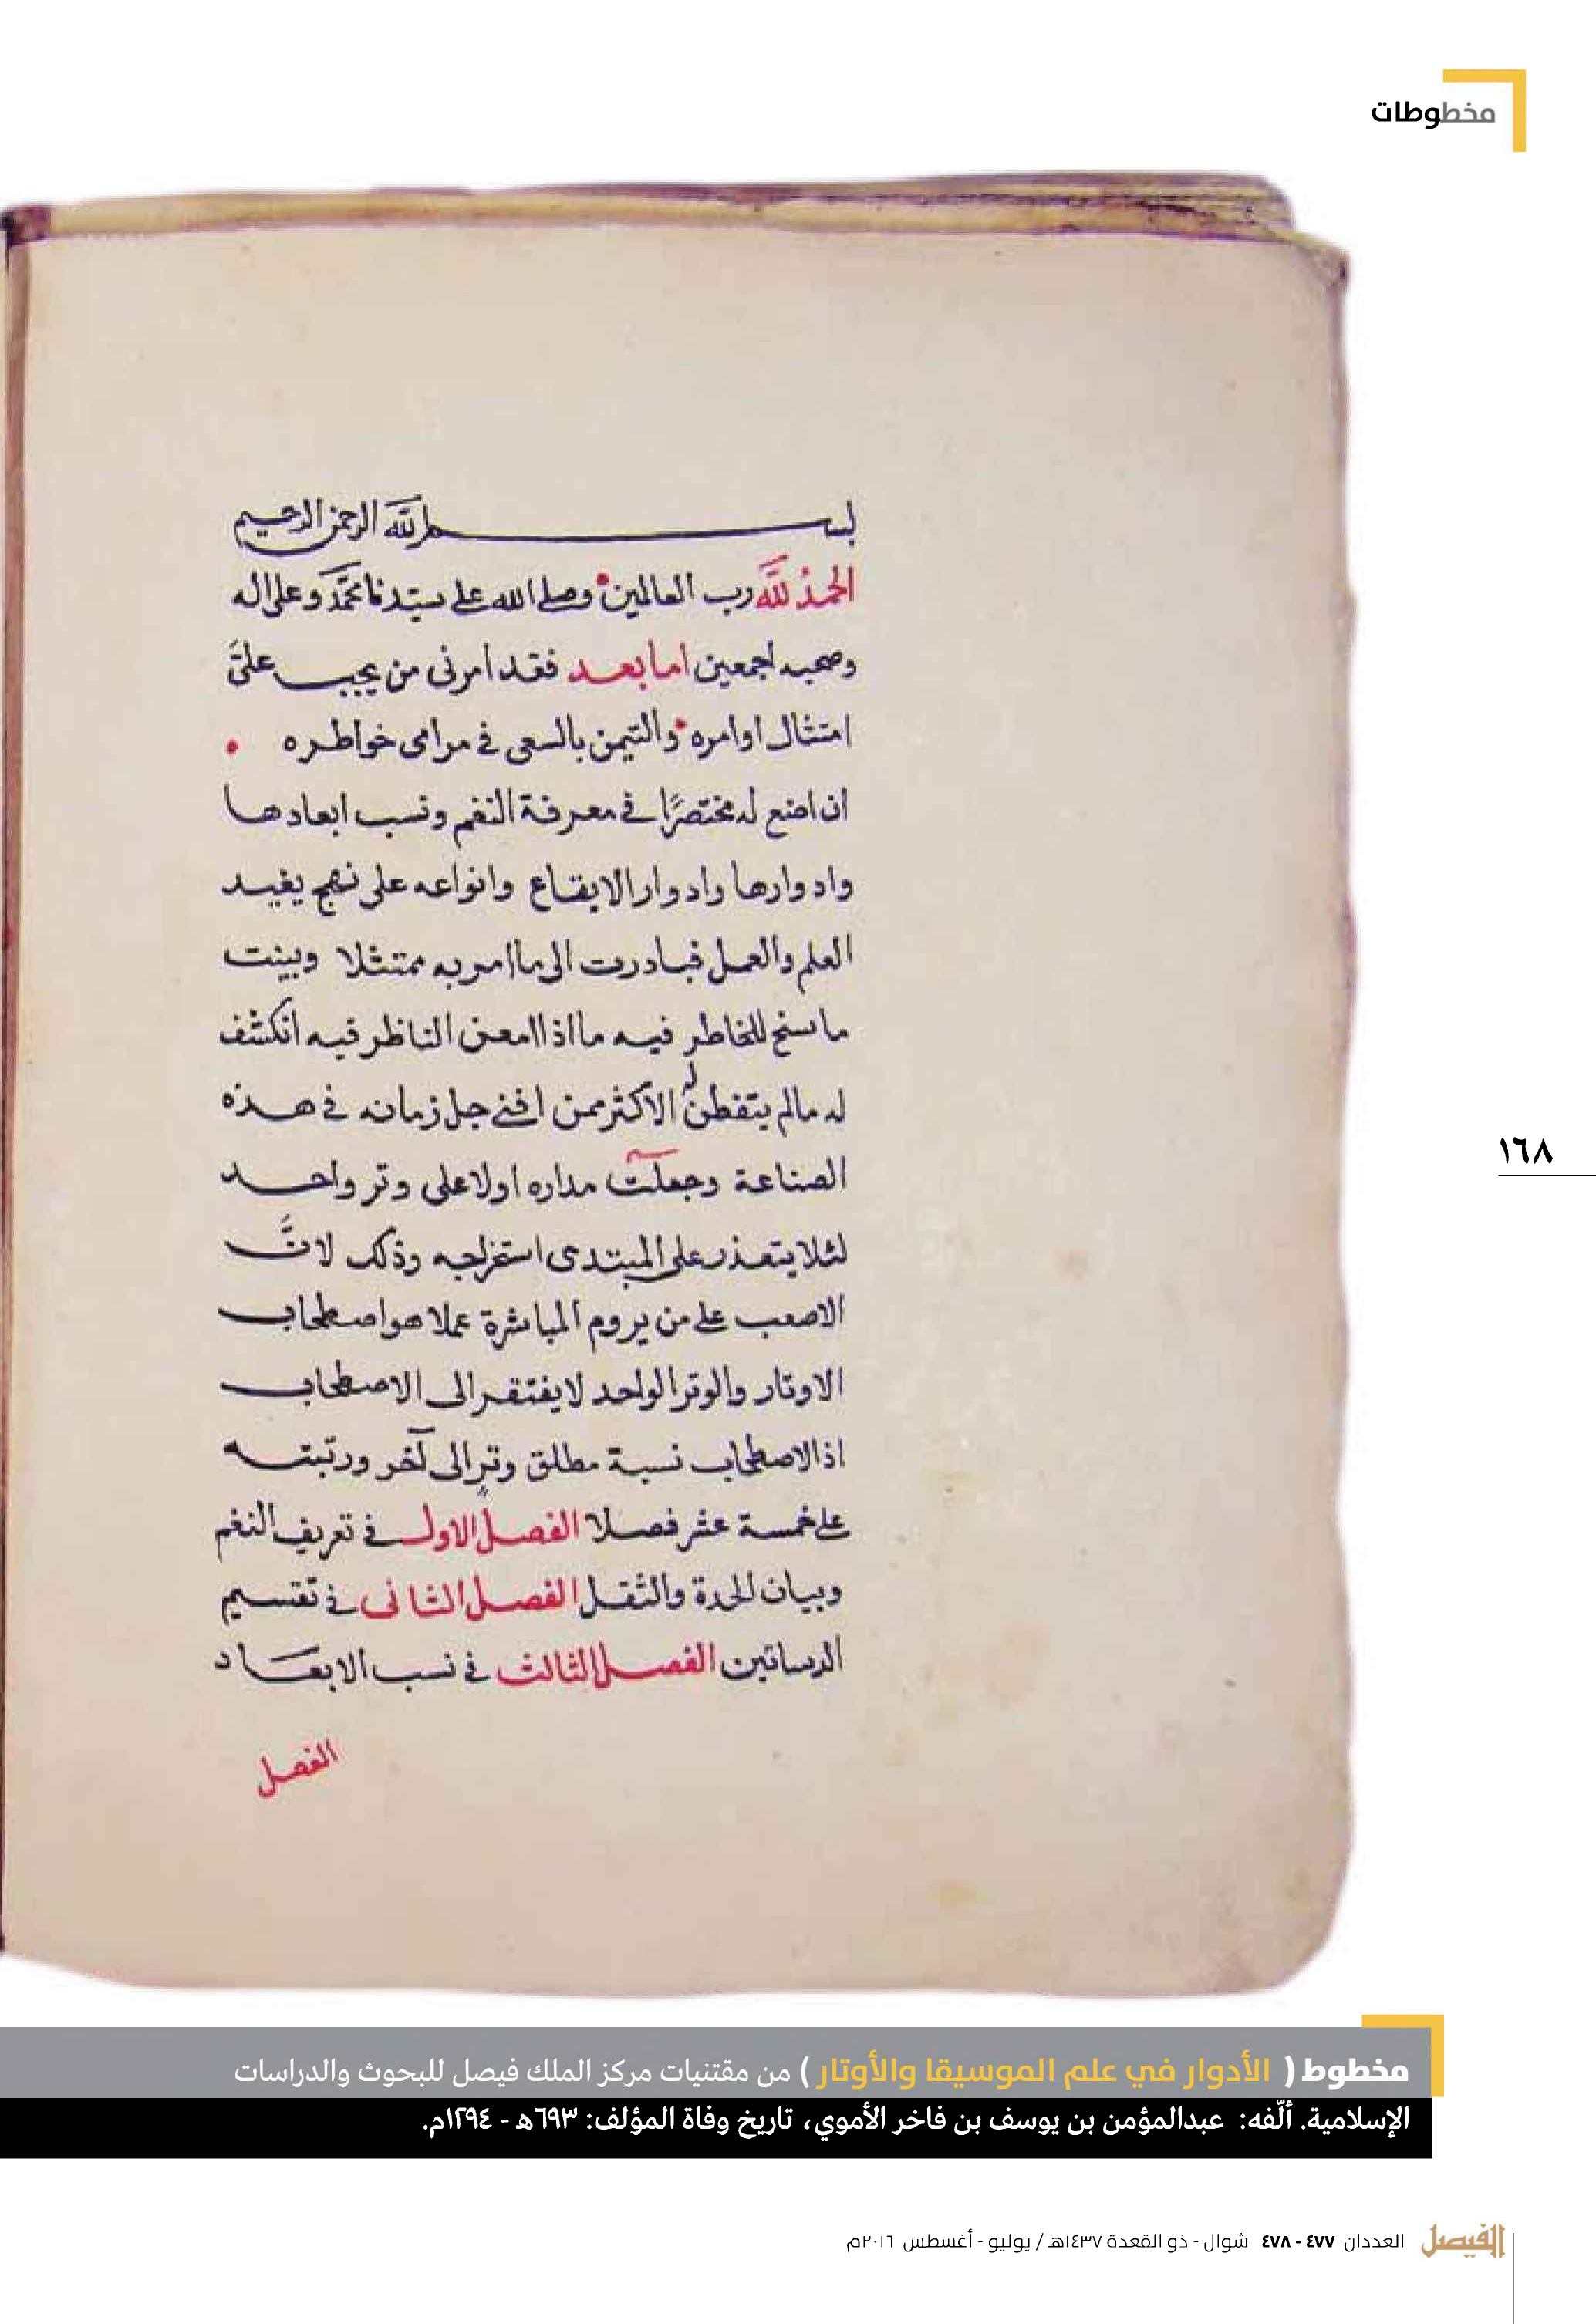 مخطوطات
بسم الله الرحمن الرحيم
الحمدُ لله رب العالمين وصلى الله على سيّدنا محمّد وعلى اله
وصحبه اجمعين اما بعد فقد امرنى من يجب علىّ
امتثال اوامره والتيمن بالسعى فى مرامى خواطره
ان اضع له مختصرًا فى معرفة النغم ونسب ابعادها
وادوارها وادوار الايقاع وانواعه على نهج يفيد
العلم والعمل فبادرت الى ما امر به ممتثلا وبينت
ما سنح للخاطر فيه ما اذا امعن الناظر فيه انكشف
له مالم يتفطن له الاكثر ممن افنى جل زمانه فى هذه
الصناعة وجعلت مداره اولا على وتر واحد
لئلا يتعذر على المبتدى استخراجه وذلك لانَّ
الاصعب على من يروم المباشرة عملا هو اصطحاب
الاوتار والوتر الواحد لا يفتقر الى الاصطحاب
اذ الاصطحاب نسبة مطلق وتر الى آخر ورتبته
على خمسة عشر فصلا الفصل الاول فى تعريف النغم
وبيان الحدة والثقل الفصل الثانى فى تقسيم
الدساتين الفصل الثالث فى نسب الابعاد
الفصل
١٦٨
مخطوط ( الأدوار في علم الموسيقا والأوتار ) من مقتنيات مركز الملك فيصل للبحوث والدراسات
الإسلامية. ألّفه: عبدالمؤمن بن يوسف بن فاخر الأموي، تاريخ وفاة المؤلف: ٦٩٣هـ - ١٢٩٤م.
الفيصل العددان ٤٧٧ - ٤٧٨ شوال - ذو القعدة ١٤٣٧هـ / يوليو - أغسطس ٢٠١٦م